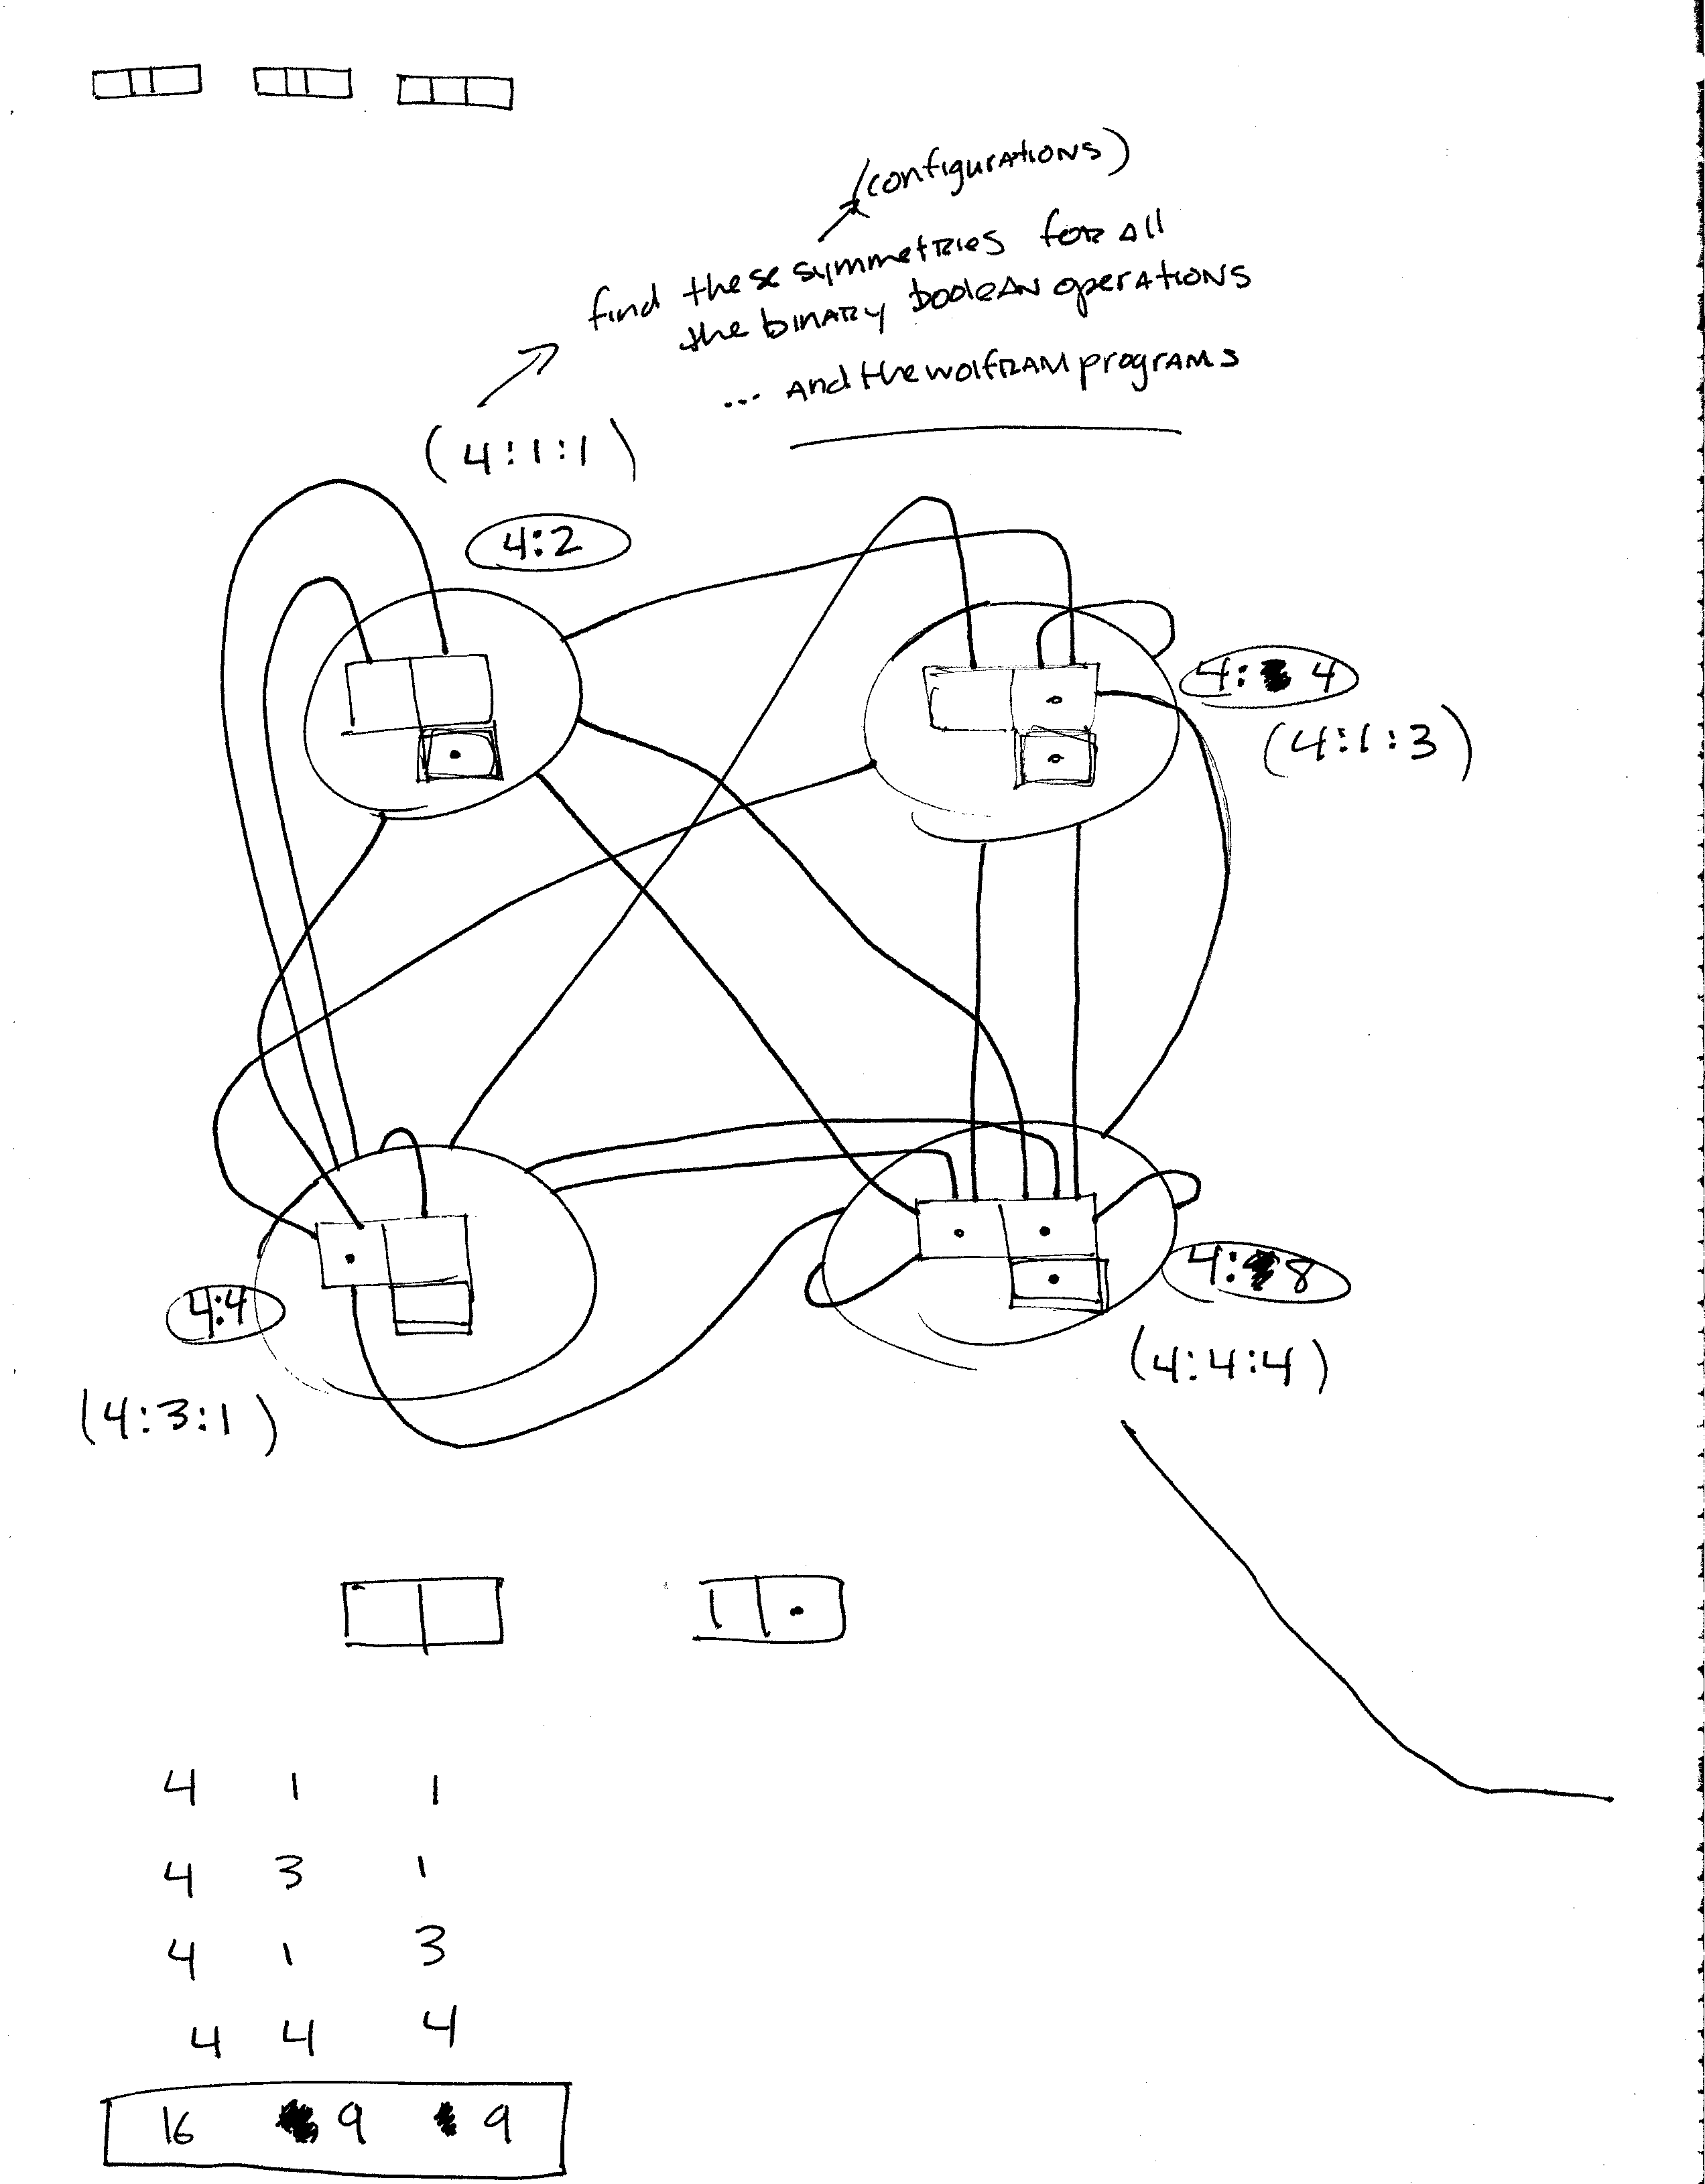 (configurations)
find these symmetries for all
the binary boolean operations
... and the wolfram programs
(4:1:1)
4:2
4: 4
(4:1:3)
4:4
(4:3:1)
4: 8
(4:4:4)
4 1 1
4 3 1
4 1 3
4 4 4
16 9 9